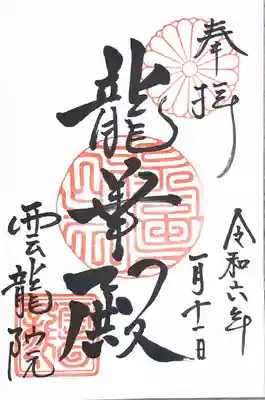 奉拝
令和六年
一月十一日
龍華殿
雲龍院